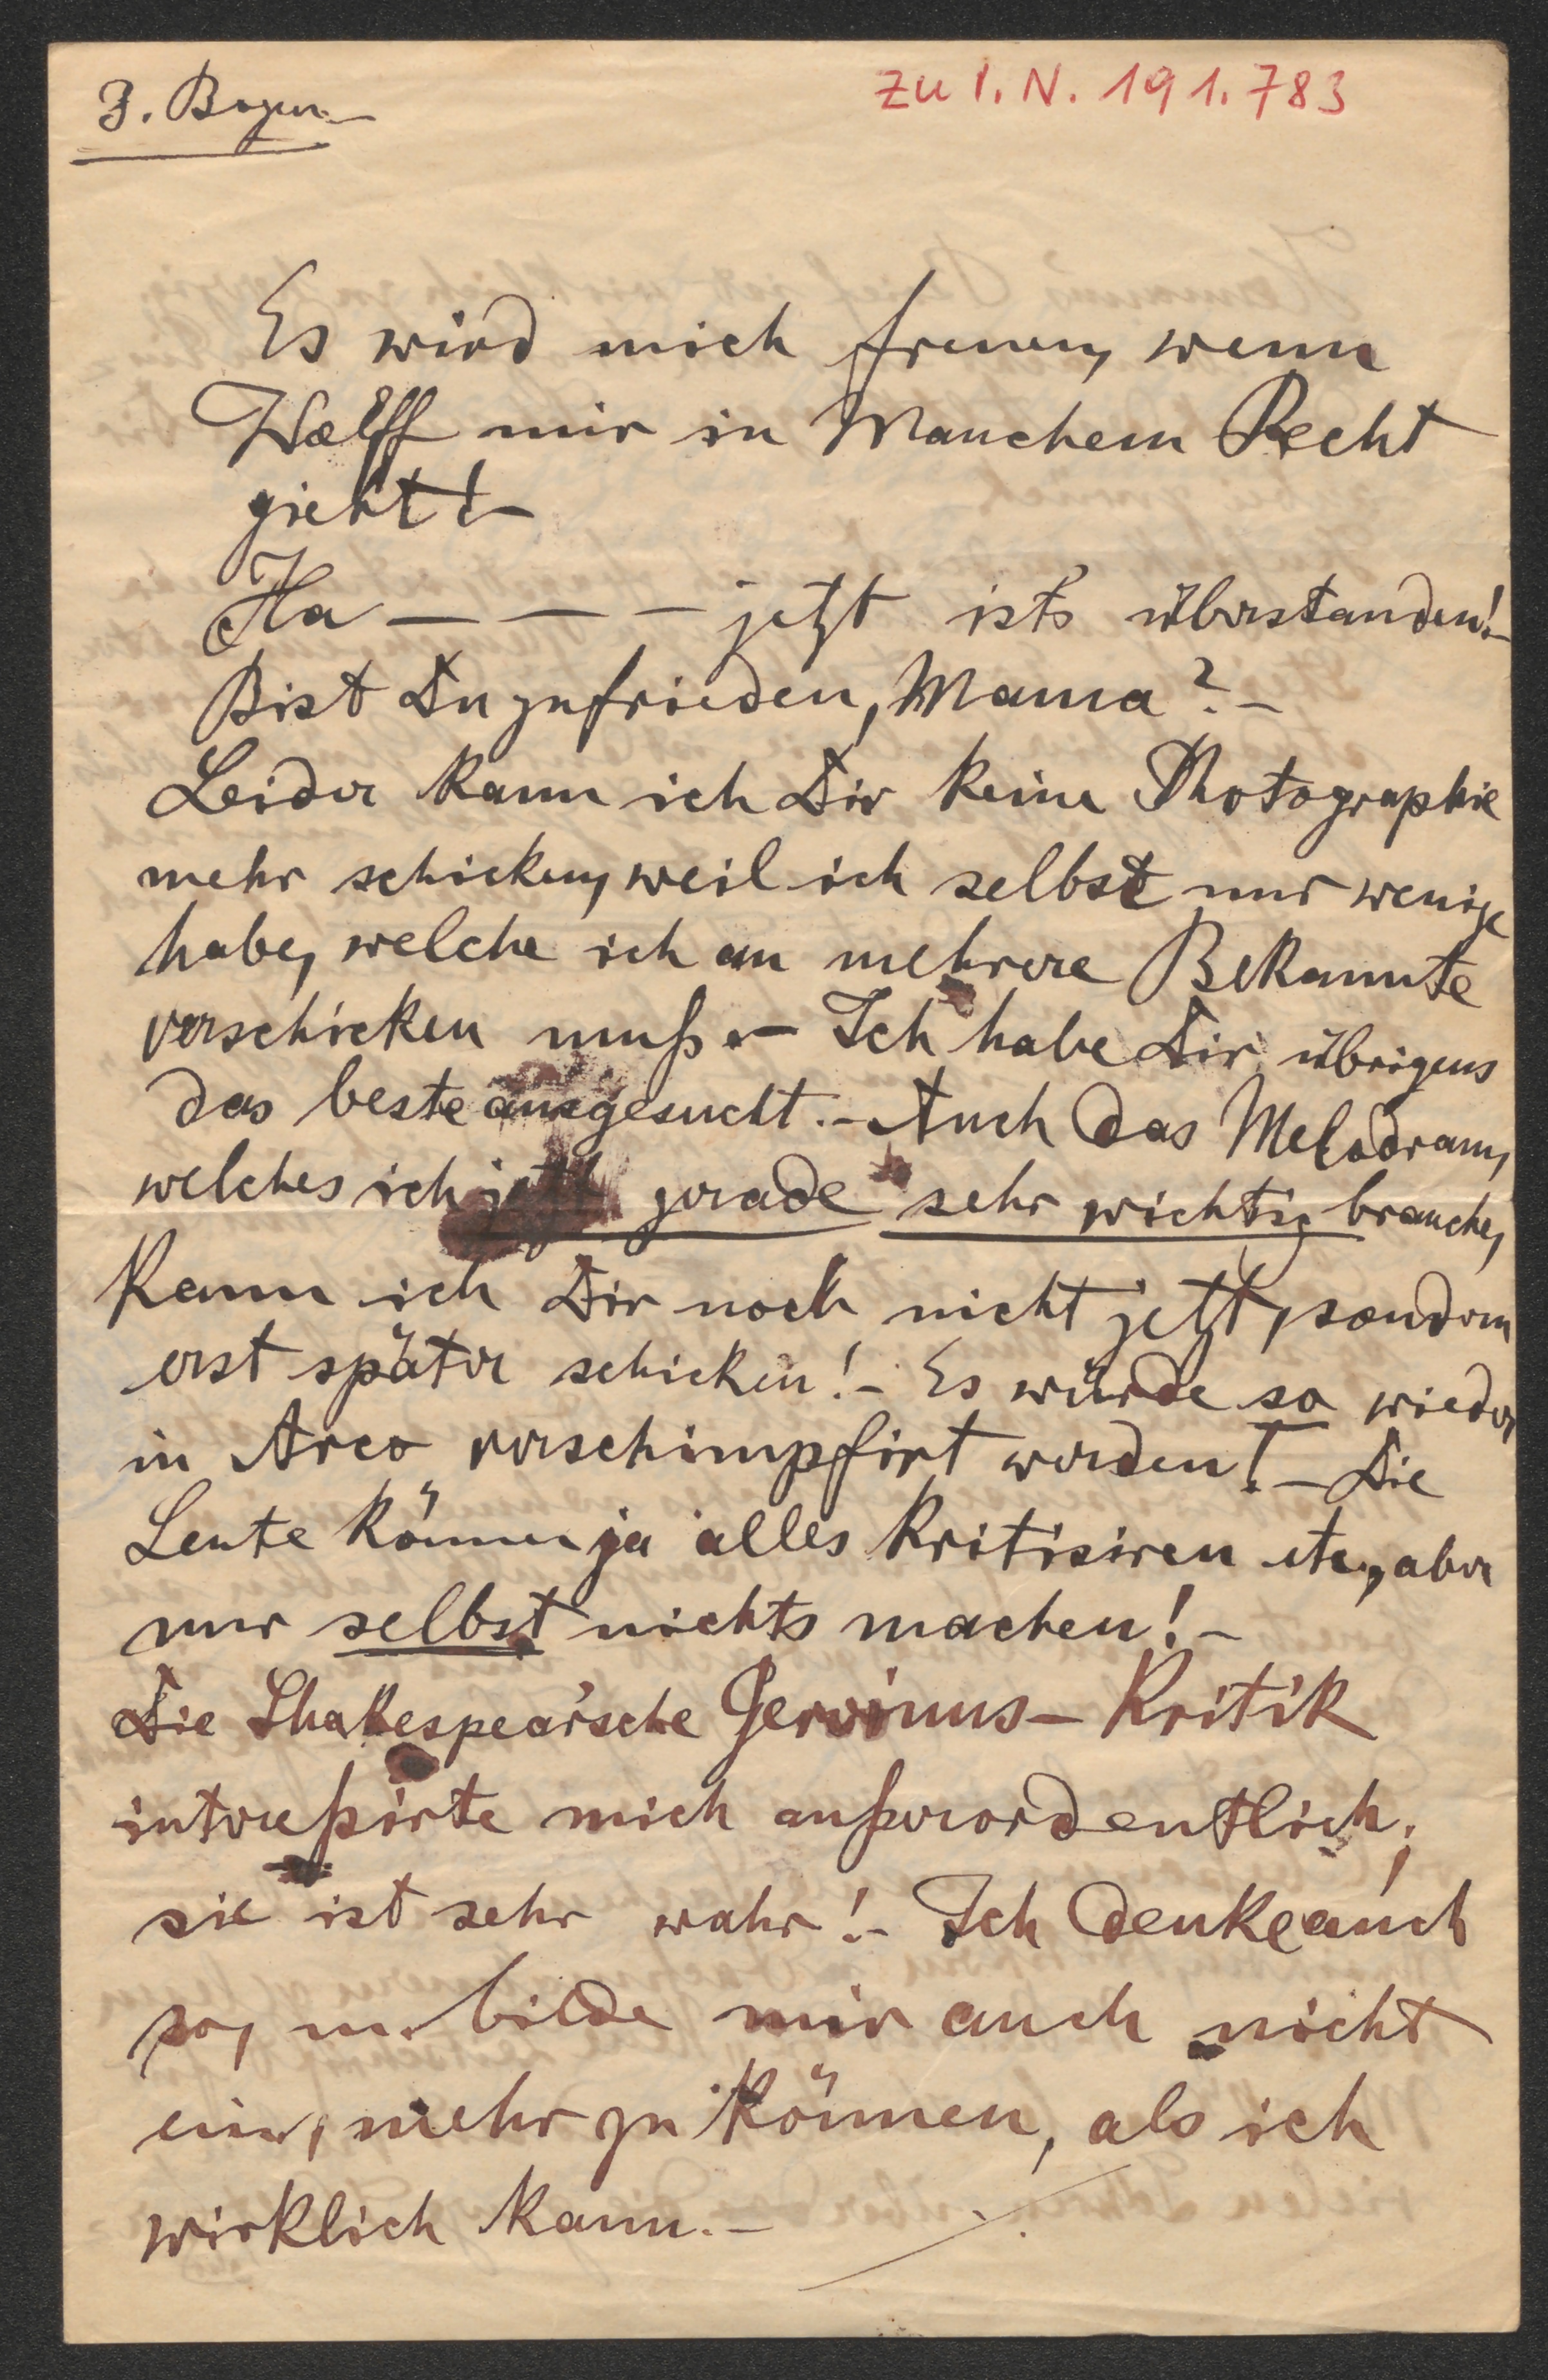 3. Bogen
zu I. N. 191.783
Es wird mich freuen, wenn
Wolff mir in Manchem Recht
giebt!–
Ha – – – jetzt ists überstanden!–
Bist Du zufrieden, Mama?–
Leider kann ich Dir keine Photographie
mehr schicken, weil ich selbst nur wenige
habe, welche ich an mehrere Bekannte
verschicken muß.– Ich habe Dir übrigens
das beste ausgesucht.– Auch das Melodram,
welches ich jetzt gerade sehr wichtig brauche,
kann ich Dir noch nicht jetzt, sondern
erst später schicken!– Es würde so wieder
in Arco verschimpfirt werden!– Die
Leute können ja alles kritisiren etc., aber
nur selbst nichts machen!–
Die Shakespear'sche Gervinus–Kritik
intereßirte mich außerordentlich;
sie ist sehr wahr!– Ich denke auch
so, u. bilde mir auch nicht
ein, mehr zu können, als ich
wirklich kann.–